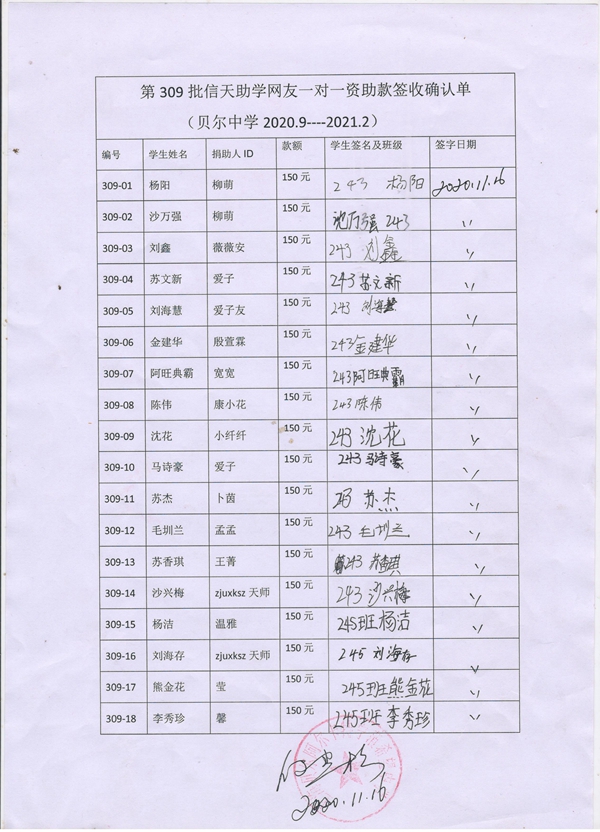 第 309 批信天助学网友一对一资助款签收确认单
（贝尔中学 2020.9----2021.2）
编号 学生姓名 捐助人 ID 款额 学生签名及班级 签字日期
309-01 杨阳 柳萌 150 元 243 杨阳 2020.11.16
309-02 沙万强 柳萌 150 元 沈万强 243 〃
309-03 刘鑫 薇薇安 150 元 243 刘鑫 〃
309-04 苏文新 爱子 150 元 243苏文新 〃
309-05 刘海慧 爱子友 150 元 243 刘海慧 〃
309-06 金建华 殷萱霖 150 元 243金建华 〃
309-07 阿旺典霸 宽宽 150 元 243阿旺典霸 〃
309-08 陈伟 康小花 150 元 243陈伟 〃
309-09 沈花 小纤纤 150 元 243 沈花 〃
309-10 马诗豪 爱子 150 元 243马诗豪 〃
309-11 苏杰 卜茵 150 元 243 苏杰 〃
309-12 毛圳兰 孟孟 150 元 243 毛圳兰 〃
309-13 苏香琪 王菁 150 元 243 苏香琪 〃
309-14 沙兴梅 zjuxksz 天师 150 元 243 沙兴梅 〃
309-15 杨洁 温雅 150 元 245班杨洁 〃
309-16 刘海存 zjuxksz 天师 150 元 245 刘海存 〃
309-17 熊金花 莹 150 元 245班熊金花 〃
309-18 李秀珍 馨 150 元 245班 李秀珍 〃
2020.11.16